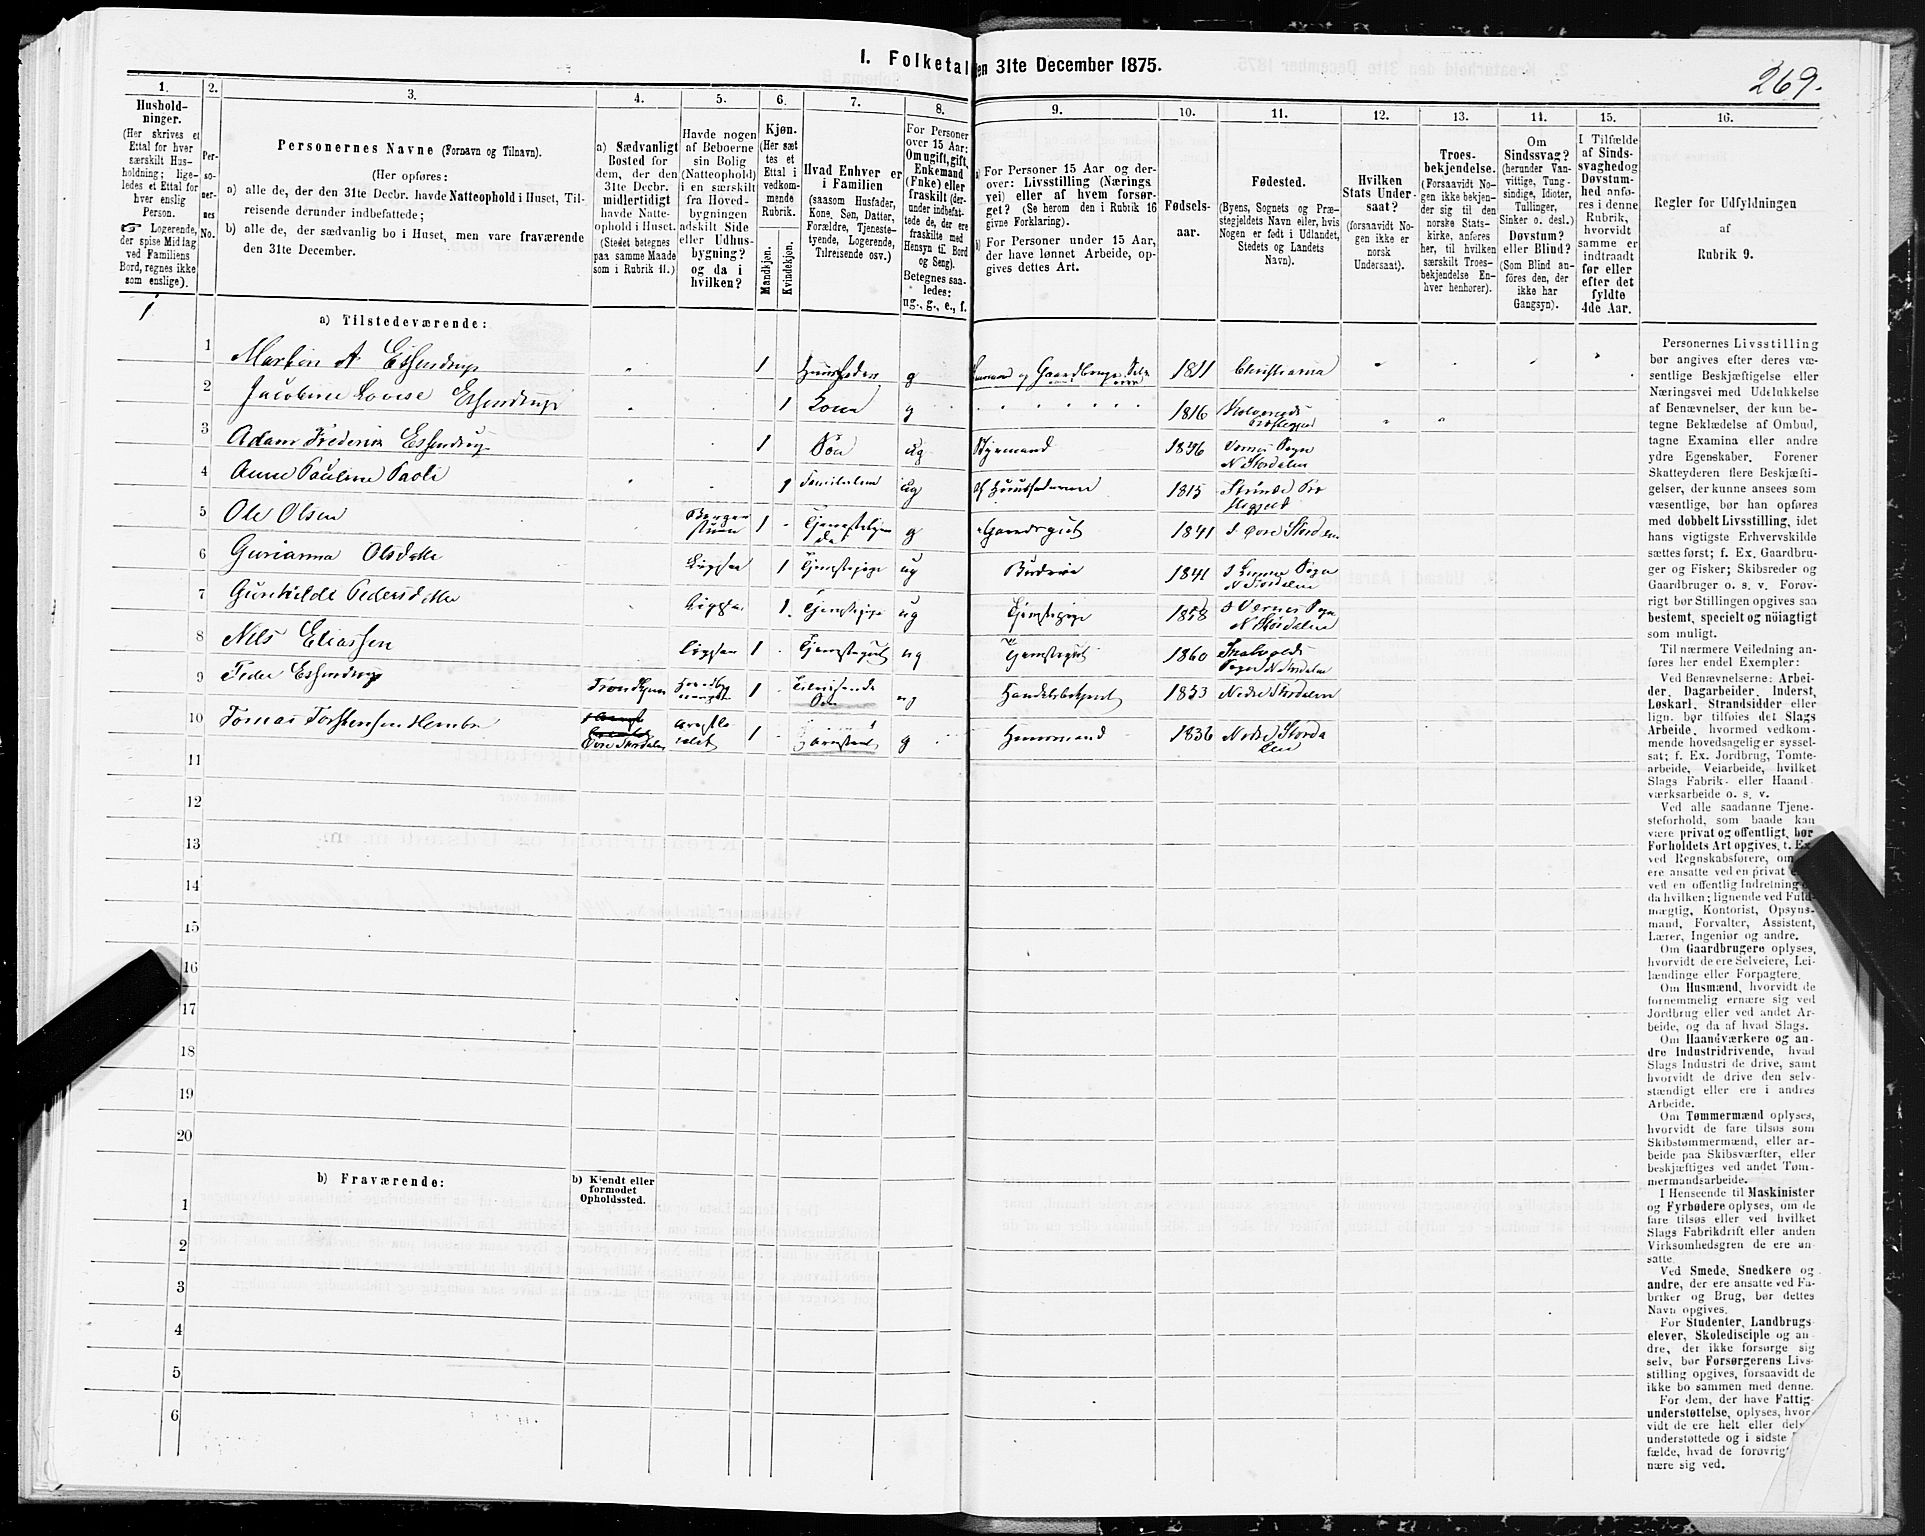 269.
I. Folketal den 31te December 1875.
1.
Hushold-
ninger.
(Her skrives et
Ettal for hver
særskilt Hus-
holdning; lige-
ledes et Ettal for
hver enslig
Person.
☞ Logerende,
der spise Middag
ved Familiens
Bord, regnes ikke
som enslige).
2.
Per-
so-
ner-
nes
No.
3.
Personernes Navne (Fornavn og Tilnavn).
(Her opføres:
a) alle de, der den 31te Decbr. havde Natteophold i Huset, Til-
reisende derunder indbefattede;
b) alle de, der sædvanlig bo i Huset, men vare fraværende
den 31te December.
4.
a) Sædvanligt
Bosted for
dem, der den
31te Decbr.
midlertidigt
havde Natte-
ophold i Huset.
(Stedet betegnes
paa samme Maade
som i Rubrik 11.)
5.
Havde nogen
af Beboerne
sin Bolig
(Natteophold)
i en særskilt
fra Hoved-
bygningen
adskilt Side
eller Udhus-
bygning?
og da i
hvilken?
6.
Kjøn.
(Her sæt
tes et
Ettal i
vedkom-
mende
Rubrik.
Mandkjøn.
Kvindekjøn.
7.
Hvad Enhver er
i Familien
(saasom Husfader,
Kone, Søn, Datter,
Forældre, Tjeneste-
tyende, Logerende,
Tilreisende osv.)
8.
For Personer
over 15 Aar:
Om ugift, gift,
Enkemand
(Enke) eller
fraskilt (der-
under indbefat-
tede de, der ere
fraskilte med
Hensyn til Bord
og Seng).
Betegnes saa-
ledes:
ug., g., e., f.
9.
a) For Personer 15 Aar og der-
over: Livsstilling (Nærings
vei) eller af hvem forsør-
get? (Se herom den i Rubrik 16
givne Forklaring).
b) For Personer under 15 Aar,
der have lønnet Arbeide, op-
gives dettes Art.
10.
Fødsels-
aar.
11.
Fødested.
(Byens, Sognets og Præ-
stegjeldets Navn eller, hvis
Nogen er født i Udlandet,
Stedets og Landets
Navn).
12.
Hvilken
Stats Under-
saat?
(forsaavidt No-
gen ikke er
norsk
Undersaat).
13.
Troes-
bekjendelse.
(Forsaavidt No-
gen ikke bekjen-
der sig til den
norske Stats-
kirke, anføres
her, til hvilken
særskilt Troes-
bekjendelse En-
hver henhører).
14.
Om
Sindssvag?
(herunder Van-
vittige, Tung-
sindige, Idioter,
Tullinger,
Sinker o. desl.)
Døvstum?
eller Blind?
(Som Blind an-
føres den, der
ikke har
Gangsyn).
15.
I Tilfælde
af Sinds-
svaghed og
Døvstum-
hed anfø-
res i denne
Rubrik,
hvorvidt
samme er
indtraadt
før eller
efter det
fyldte
4de Aar.
16.
Regler for Udfyldningen
af
Rubrik 9.
1
a) Tilstedeværende:
1 Martin A Essendrop 1 g 1811 Christiania
2 Jacobine Lovise Essendrop 1 Kone g 1816
3 Adam Frederik Essendrop 1 Søn ug Styrmand 1836 Sogn N Stordalen
4 Anne Pauline 1 ug af Huusfaderen 1815 Strinde
5 Ole Olsen Borger stuen 1 g Gaardsgut 1841 Øvre Stordalen
6 Gurianna Olsdatter 1 Tjenestepige ug Budeie 1841 Sogn N Stordalen
7 Gunhilde Pedersdatter 1 Tjenestepige ug Tjenestepige 1858 Sogn N Stordalen
8 Nils Eliassen 1 Tjenestegut ug Tjenestegut 1860 Sogn N Stordalen
9 Peder Essendrop Trondhjem 1 Tilreisende Søn ug 1853 Nedre Stordalen
10 Tomas Torstensen Øvre Stordalen 1 g Huusmand 1836 Nedre Stordalen
11
12
13
14
15
16
17
18
19
20
b) Fraværende:
b) Kjendt eller
formodet
Opholdssted.
1
2
3
4
5
6
Personernes Livsstilling
bør angives efter deres væ-
sentlige Beskjæftigelse eller
Næringsvei med Udelukkelse
af Benævnelser, der kun be-
tegne Beklædelse af Ombud,
tagne Examina eller andre
ydre Egenskaber. Forener
Skatteyderen flere Beskjæfti-
gelser, der kunne ansees som
væsentlige, bør han opføres
med dobbelt Livsstilling, idet
hans vigtigste Erhvervskilde
sættes først; f. Ex. Gaardbru-
ger og Fisker; Skibsreder og
Gaardbruger o. s. v. Forøv-
rigt bør Stillingen opgives saa
bestemt, specielt og nöiagtigt
som muligt.
Til nærmere Veiledning an-
føres her endel Exempler:
Ved Benævnelserne: Arbei-
der, Dagarbeider, Inderst,
Løskarl, Strandsidder eller
lign. bør tilføies det Slags
Arbeide, hvormed vedkom-
mende hovedsagelig er syssel-
sat; f. Ex. Jordbrug, Tomte-
arbeide, Veiarbeide, hvilket
Slags Fabrik- eller Haand-
værksarbeide o. s. v.
Ved alle saadanne Tjene-
steforhold, som baade kan
være privat og offentligt, bør
Forholdets Art opgives, t. Ex.
ved Regnskabsførere, om
ere ansatte ved en privat
ved en offentlig Indretning
da hvilken; lignende ved Fuld-
mægtig, Kontorist, Opsyns-
mand, Forvalter, Assistent,
Lærer, Ingeniør og andre.
Om Gaardbrugere oplyses,
hvorvidt de ere Selveiere, Lei-
lændinge eller Forpagtere.
Om Husmænd, hvorvidt de
fornemmelig ernære sig ved
Jordbrug eller ved andet Ar-
beide, og da af hvad Slags.
Om Haandværkere og an-
dre Industridrivende, hvad
Slags Industri de drive, samt
hvorvidt de drive den selv-
stændigt eller ere i andres
Arbeide.
Om Tømmermænd oplyses,
hvorvidt de fare tilsøs som
Skibstømmermænd, eller ar-
beide paa Skibsværfter, eller
beskjæftiges ved andet Tøm-
mermandsarbeide.
I Henseende til Maskinister
og Fyrbødere oplyses, om de
fare tilsøs eller ved hvilket
Slags Fabrikdrift eller anden
Virksomhedsgren de ere an-
satte.
Ved Smede, Snedkere og
andre, der ere ansatte ved Fa-
briker og Brug, bør dettes
Navn opgives.
For Studenter, Landbrugs-
elever, Skoledisciple og an-
dre, der ikke forsørge sig
selv, bør Forsørgerens Livs-
stilling opgives, forsaavidt de
ikke bo sammen med denne.
For dem, der have Fattig-
understøttelse, oplyses, hvor-
vidt de ere helt eller
understøttede og i sidste
fælde, hvad de forøvrigt
nære sig ved.